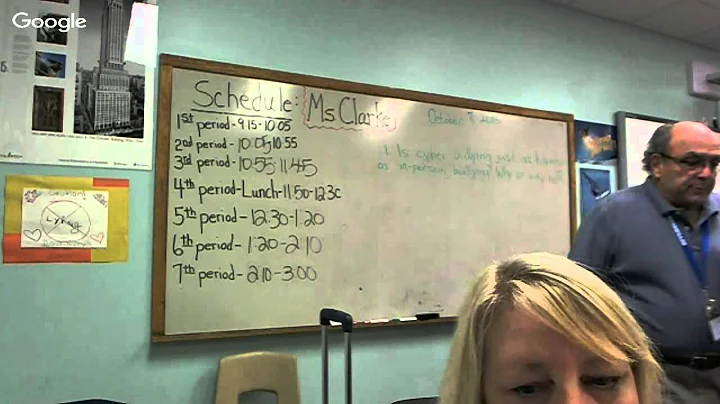 Google
Schedule: Ms Clarke
1st period-9:15-10:05
2nd period-10:05-10:55
3rd period-10:55-11:45
4th period-Lunch-11:50-12:30
5th period-12:30-1:20
6th period-1:20-2:10
7th period-2:10-3:00
October
1. Is cyber bullying just as
as in-person bullying? Why or why not?
Lying